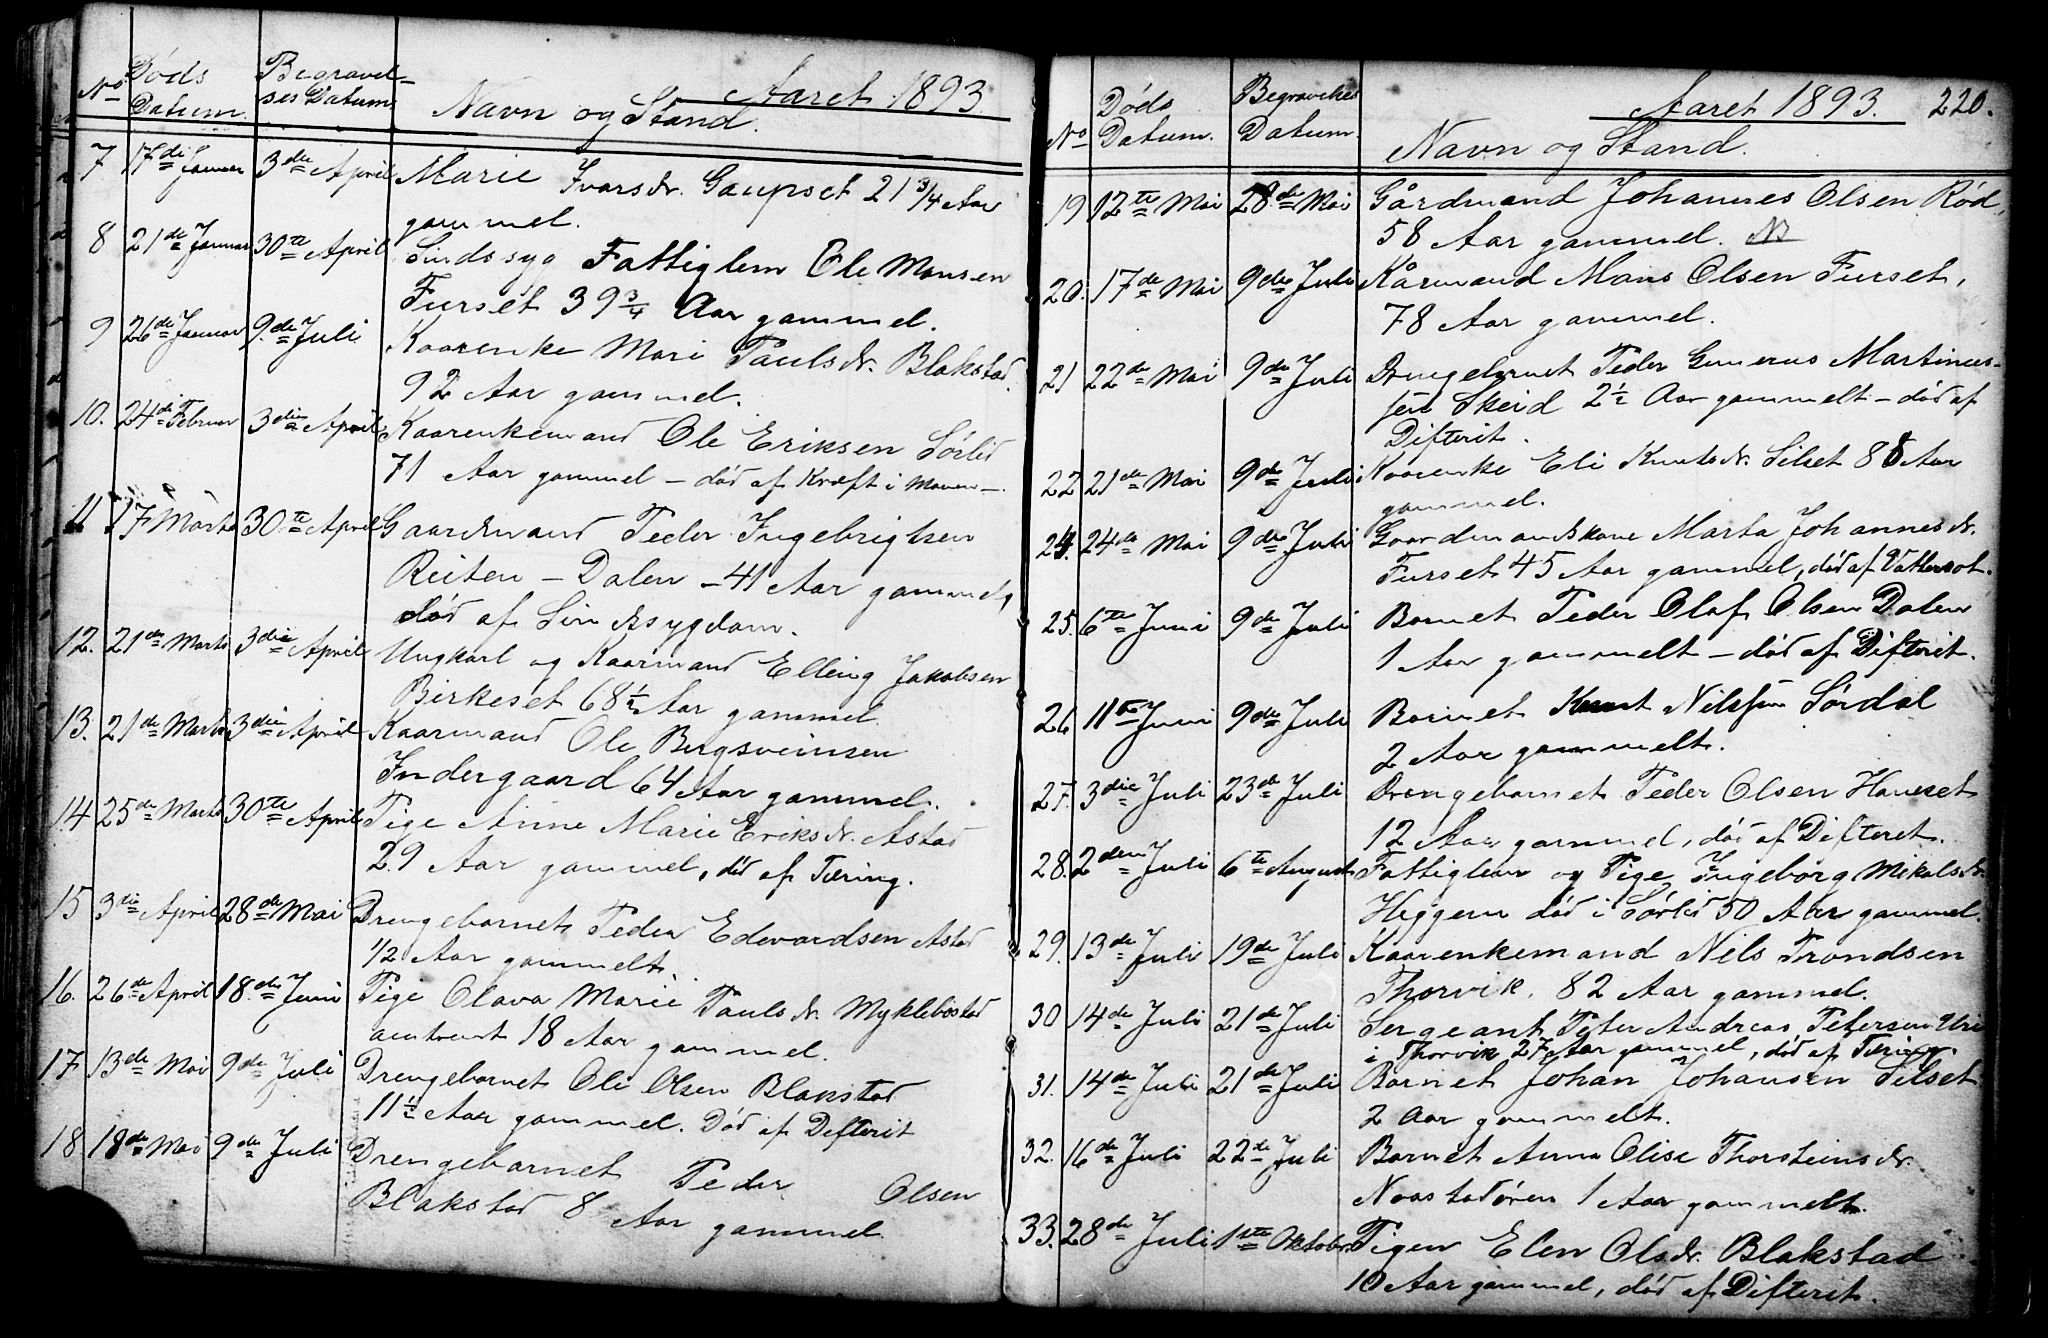 Aaret 1893.
No Døds Datum. Begravelses Datum. Navn og Stand.
7 17de Januar 3die April Marie Ivarsdr. Gaupset 21 3/4 Aar
gammel.
8 21de Januar 30te April Sindssyg Fattiglem Ole Monsen
Furset 39 3/4 Aar gammel.
9 26de Januar 9de Juli Kaarenke Mari Paulsdr. Blakstad
92 Aar gammel.
10. 24de Februar 3die April Kaarenkemand Ole Eriksen Sørlid
71 Aar gammel – død af Kræft i Maven –
11 17 Marts 30te April Gaardmand Peder Ingebrigtsen
Reiten – Dalen – 41 Aar gammel,
død af Sindssygdom.
12. 21de Marts 3die April Ungkarl og Kaarmand Elling Jakobsen
Birkeset 68 1/2 Aar gammel.
13. 21de Marts 3die April Kaarmand Ole Bergsveinsen
Indergaard 64 Aar gammel.
14 25de Marts 30te April Pige Anne Marie Eriksdr. Astad
29 Aar gammel, død af Tæring.
15 3die April 28de Mai Drengebarnet Peder Edevardsen Astad
1/2 Aar gammelt.
16. 26de April 18de Juni Pige Olava Marie Paulsdr. Myklebostad
omtrent 18 Aar gammel.
17 13de Mai 9de Juli Drengebarnet Ole Olsen Blakstad
11 1/2 Aar gammel. Død af Difterit
18 18de Mai 9de Juli Drengebarnet Peder Olsen
Blakstad 8 Aar gammel
Aaret 1893. 220.
No Døds Datum. Begravelses Datum. Navn og Stand.
19 12te Mai 28de Mai Gårdmand Johannes Olsen Rød,
58 Aar gammel. NB
20. 17de Mai 9de Juli Kårmand Mons Olsen Furset,
78 Aar gammel.
21 22de Mai 9de Juli Drengebarnet Peder Gunerus Martinus-
sen Skeid 2 1/2 Aar gammelt – død af
Difterit.
22 21de Mai 9de Juli Kaarenke Eli Knutsdr. Silset 88 Aar
gammel.
24. 24de Mai 9de Juli Gaardmandskone Marta Johannesdr.
Furset 45 Aar gammel, død af Vattersot.
25. 6te Juni 9de Juli Barnet Peder Olaf Olsen Dalen
1 Aar gammelt – død af Difterit.
26 11te Juni 9de Juli Barnet Knut Nilssen Sørdal
2 Aar gammelt.
27. 3die Juli 23de Juli Drengebarnet Peder Olsen Hauset
12 Aar gammel, død af Difteret.
28. 2den Juli 6te August Fattiglem og Pige Ingeborg Mikalsdr.
Heggem død i Sørlid 50 Aar gammel.
29. 13de Juli 19de Juli Kaarenkemand Nils Trondsen
Thorvik. 82 Aar gammel.
30 14de Juli 21de Juli Sergeant Peter Andreas Petersen Uri
i Thorvik 27 Aar gammel, død af Tæring.
31. 14de Juli 21de Juli Barnet Johan Johansen Silset
2 Aar gammelt.
32. 16de Juli 22de Juli Barnet Anna Olise Thorsteinsdr.
Naastadøren 1 Aar gammelt.
33. 28de Juli 1ste Oktober Pigen Elen Olsdr. Blakstad
10 Aar gammel, død af Difterit.